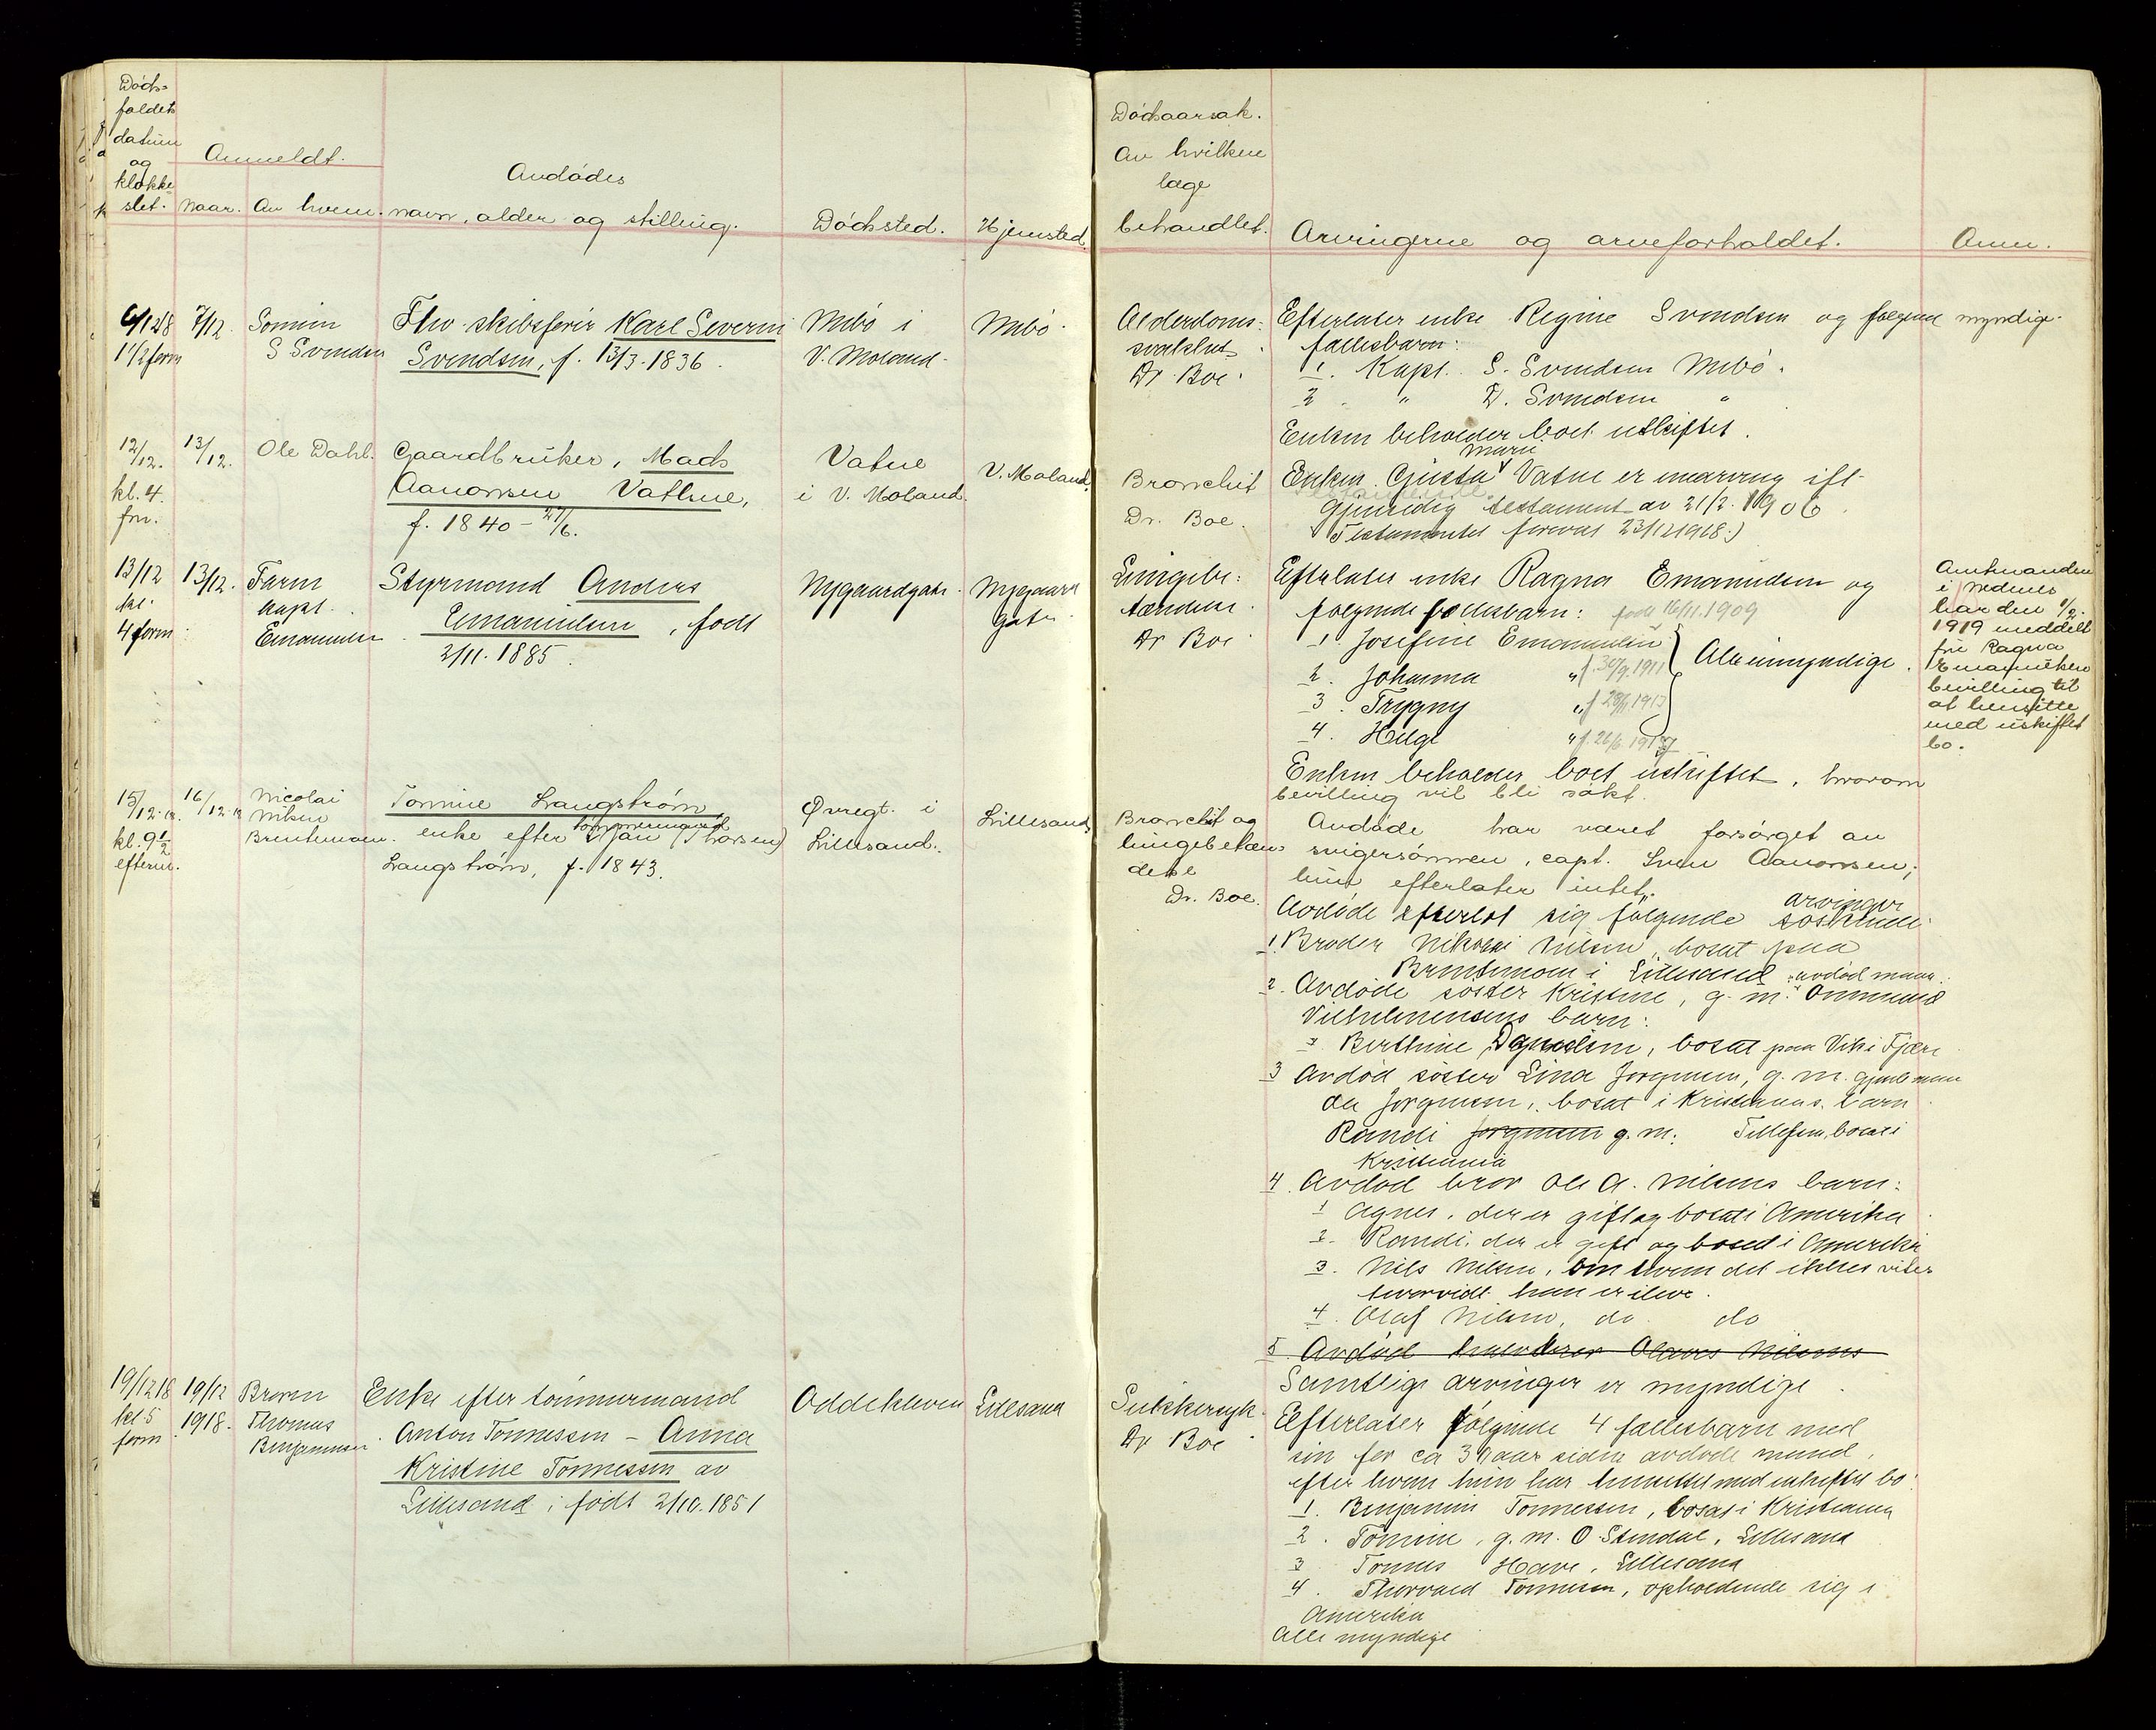 Døds-
faldets
datum
og
klokke-
slet.
Anmeldt.
Naar. Av hvem.
Avdødes
navn, alder og stilling.
Dødssted.
Hjemsted.
Dødsaarsak.
Av hvilken
læge
behandlet.
Arvingerne og arveforholdet.
Anm.
6/12 18
1 1/2 form
7/12.
Sønnen
S Svendsen
Fhv. skibsfører Karl Severin
Svendsen, f. 13/3. 1836.
Mebø i
V. Moland.
Mebø.
Alderdoms-
svakhet.
Dr. Boe.
Efterlater enke Regine Svendsen og følgende myndige
fællesbarn:
1. Kapt. S. Svendsen Mebø.
2. " D. Svendsen "
Enken beholder boet uskiftet.
12/12.
kl. 4
fm.
13/12.
Ole Dahl.
Gaardbruker, Mads
Aanonsen Vathne,
f. 1840 - 27/6.
Vatne
i V. Moland.
V. Moland.
Bronchit
Dr. Boe.
Enken Gusta Marie Vatne er enearving ift.
gjensidig testament av 21/2. 1906.
Testamentet
23/12 1918.)
13/12
kl.
4 form.
13/12.
Farm
kapt.
Emanuelsen.
Styrmand Anders
Emanuelsen, født
2/11. 1885.
Nygaardgaten.
Nygaard
gaten.
Lungebe-
tændelse.
Dr Boe
Efterlater enke Ragna Emanuelsen og
følgende fællesbarn: født 16/11. 1909
1. Josefine Emanuelsen
2. Johanna " f. 30/9. 1911
3. Trygny " f 28/1 1913
4. Helge " f. 26/6. 1917
Alle umyndige.
Enken beholder boet uskiftet, hvorom
bevilling vil bli søkt.
Amtmanden
i Nedenes
har den 1/2.
1919 meddelt
fru Ragna
Emanuelsen
bevilling til
at hensitte
med uskiftet
bo.
15/12. 18.
kl. 9 1/2
efterm.
16/12. 18
Nicolai
Nilsen
Brentemoen.
Tomine Langstrøm,
enke efter tømmermand Stian (Thorsen)
Langstrøm, f. 1843.
Øvregt. i
Lillesand.
Lillesand
Bronchit og
lungebetæn-
delse
Dr. Boe.
Avdøde har været forsørget av
svigersønnen, capt. Sven Aanonsen;
hun efterlater intet.
Avdøde efterlot sig følgende søskende arvinger
1. Broder Nikolai Nilsen, bosat paa
Brentemoen i Lillesand
2. Avdøde søster Kristine, g. m. avdød maan. Ommund
Vilhelmensens barn:
1 Berthine Danielsen, bosat paa Vik i Fjære
3 Avdød søster Lina Jørgensen, g. m. gjenlevende
Jørgensen, bosat i Kristiania. barn
Randi Jørgensen g. m. Tellefsen, bosat i
Kristiania
4. Avdød bror Ole A. Nilsens barn:
1 Agnes, der er gift og bosat i Amerika
2. Randi, der er gift og bosed i Amerika
3. Nils Nilsen, om hvem det ikke vites
hvorvidt han er ilive.
4. Olaf Nilsen, do do
5. Avdød halvbror Olaves Nilsens
Samtlige arvinger er myndige.
19/12 18
kl 5
form.
19/12
1918.
Broren
Thomas
Benjaminsen.
Enke efter tømmermand
Anton Tønnessen - Anna
Kristine Tønnessen av
Lillesand, født 2/10. 1851
Oddekleven
Lillesand
Sukkersyk.
Dr Boe
Efterlater følgende 4 fællesbarn med
sin for ca 30 aar siden avdøde mand,
efter hvem hun har hensittet med uskiftet bo:
1. Benjamin Tønnessen, bosat i Kristiania
2. Tomine, g. m. O. Stendal, Lillesand
3 Tønnes Have, Lillesand
4. Thorvald Tønnesen, opholdende sig i
Amerika
Alle myndige